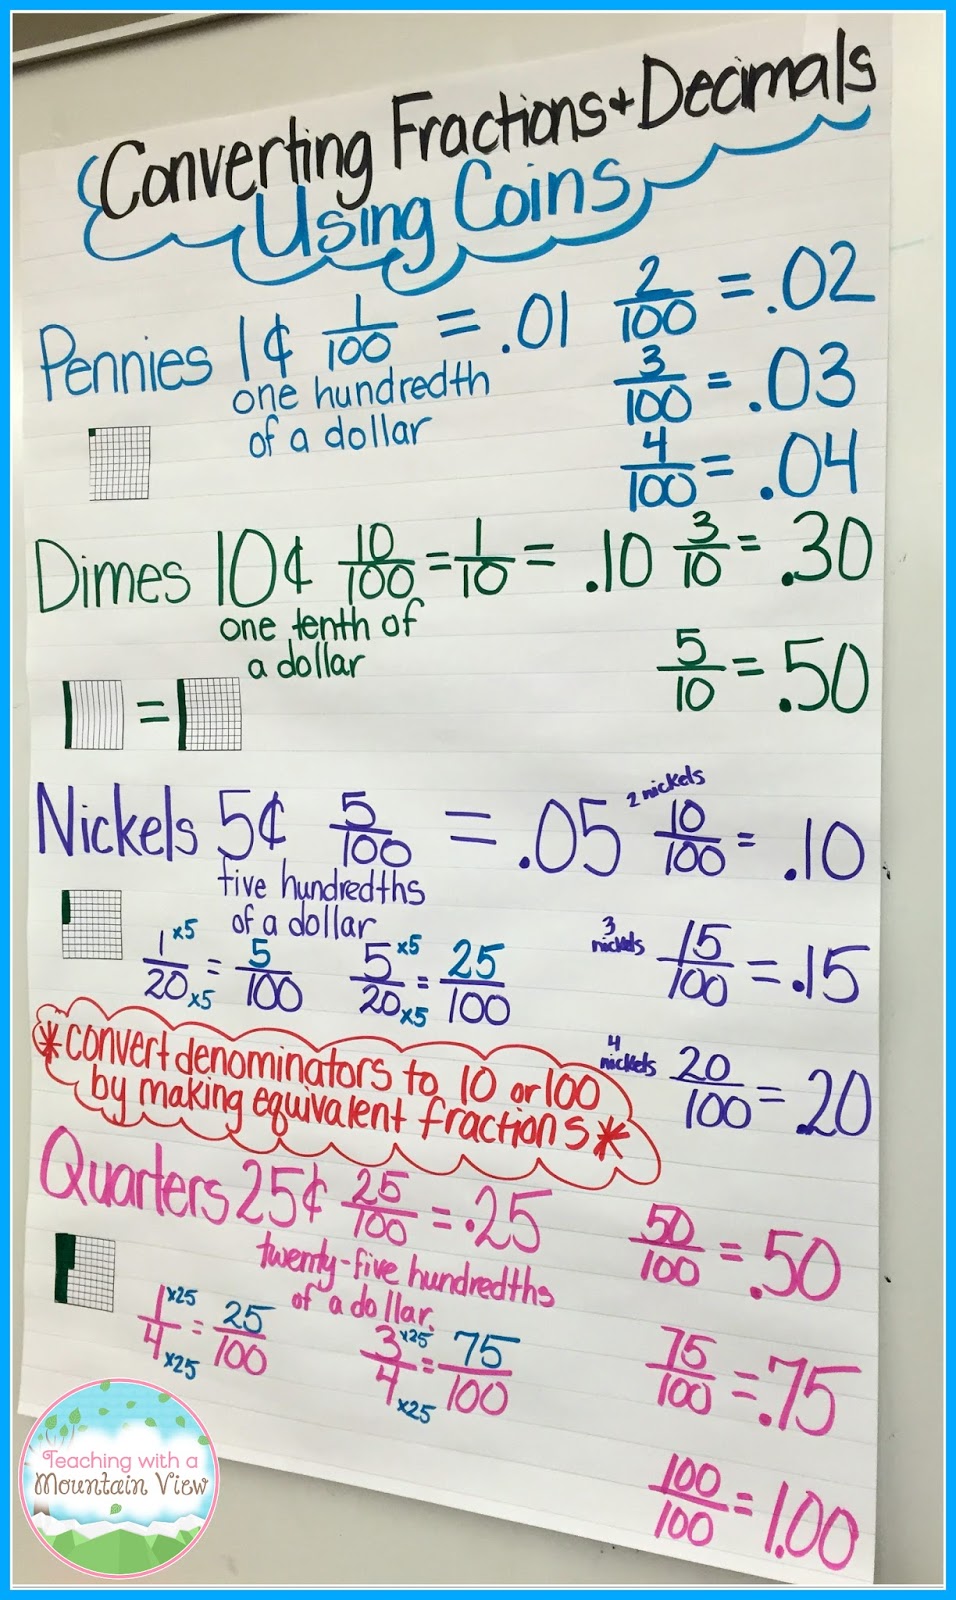 Converting Fractions + Decimals
Using Coins
Pennies 1¢ 1/100 = .01 2/100 = .02
one hundredth
of a dollar
3/100 = .03
4/100 = .04
Dimes 10¢ 10/100 = 1/10 = .10 3/10 = .30
one tenth of
a dollar
5/10 = .50
=
Nickels 5¢ 5/100 = .05 2 nickels 10/100 = .10
five hundredths
of a dollar
1/20 x5 x5 = 5/100 5/20 x5 x5 = 25/100
3 nickels 15/100 = .15
4 nickels 20/100 = .20
*convert denominators to 10 or 100
by making equivalent fractions*
Quarters 25¢ 25/100 = .25 50/100 = .50
twenty-five hundredths
of a dollar.
1/4 x25 x25 = 25/100 3/4 x25 x25 = 75/100
75/100 = .75
100/100 = 1.00
Teaching with a
Mountain View